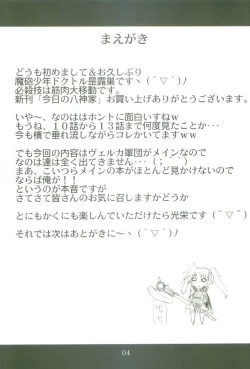 まえがき
どうも初めまして＆お久しぶり
魔砲少年ドクトル是露巣ですヽ(´▽｀)ノ
必殺技は筋肉大移動です。
新刊「今日の八神家」お買い上げありがとうございます。
いや～、なのははホントに面白いすねｗ
もうね、１０話から１３話まで何度見たことか･･･
今も横で垂れ流しながらコレかいてますｗ
でも今回の内容はヴェルカ軍団がメインなので
なのは達は全く出てきません･･･(；´⌒｀)
まあ、こいつらメインの本がほとんど見かけないので
ならば俺が！！
というのが本音ですが
さてさて皆さんのお気に召しますかどうか
とにもかくにも楽しんでいただけたら光栄です(´▽｀)
それでは次はあとがきに～ヽ(´▽｀)ノ
04